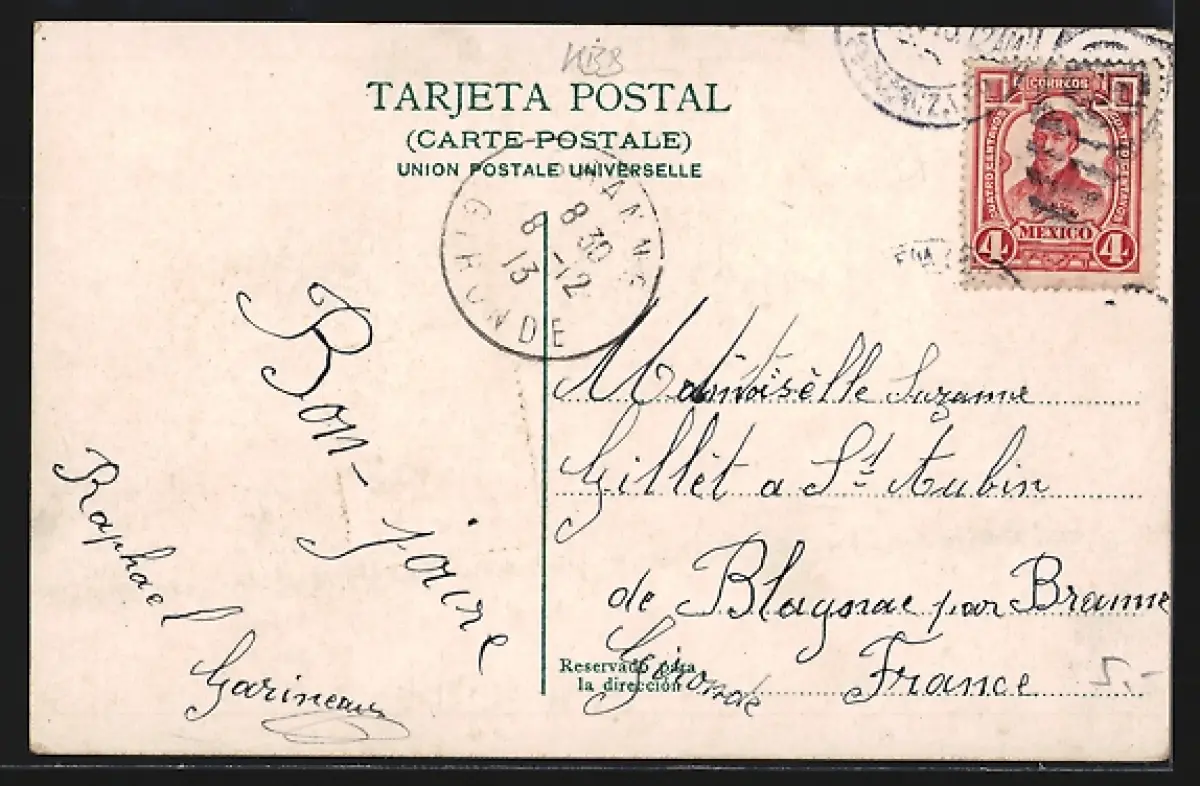 TARJETA POSTAL
(CARTE-POSTALE)
UNION POSTALE UNIVERSELLE
CORREOS
CUATRO CENTAVOS
CUATRO CENTAVOS
MEXICO
4 4
8 30
8 -12
13
GIRONDE
Bon-
jour
Raphael
Garineau
Mademoisèlle Suzanne
Gillèt a St. Aubin
de Blagnac par Branne
Gironde France
Reservado para
la dirección
5.-